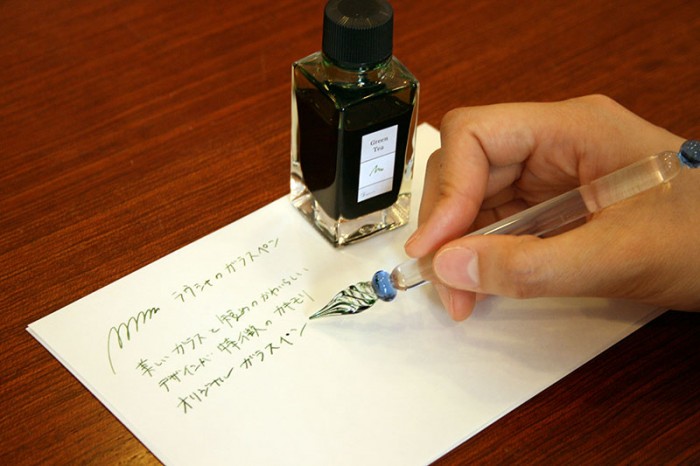 Green
Tea
ラウシャのガラスペン
美しいガラスと短めのかわいらしい
デザインが特徴のカキモリ
オリジナルガラスペン